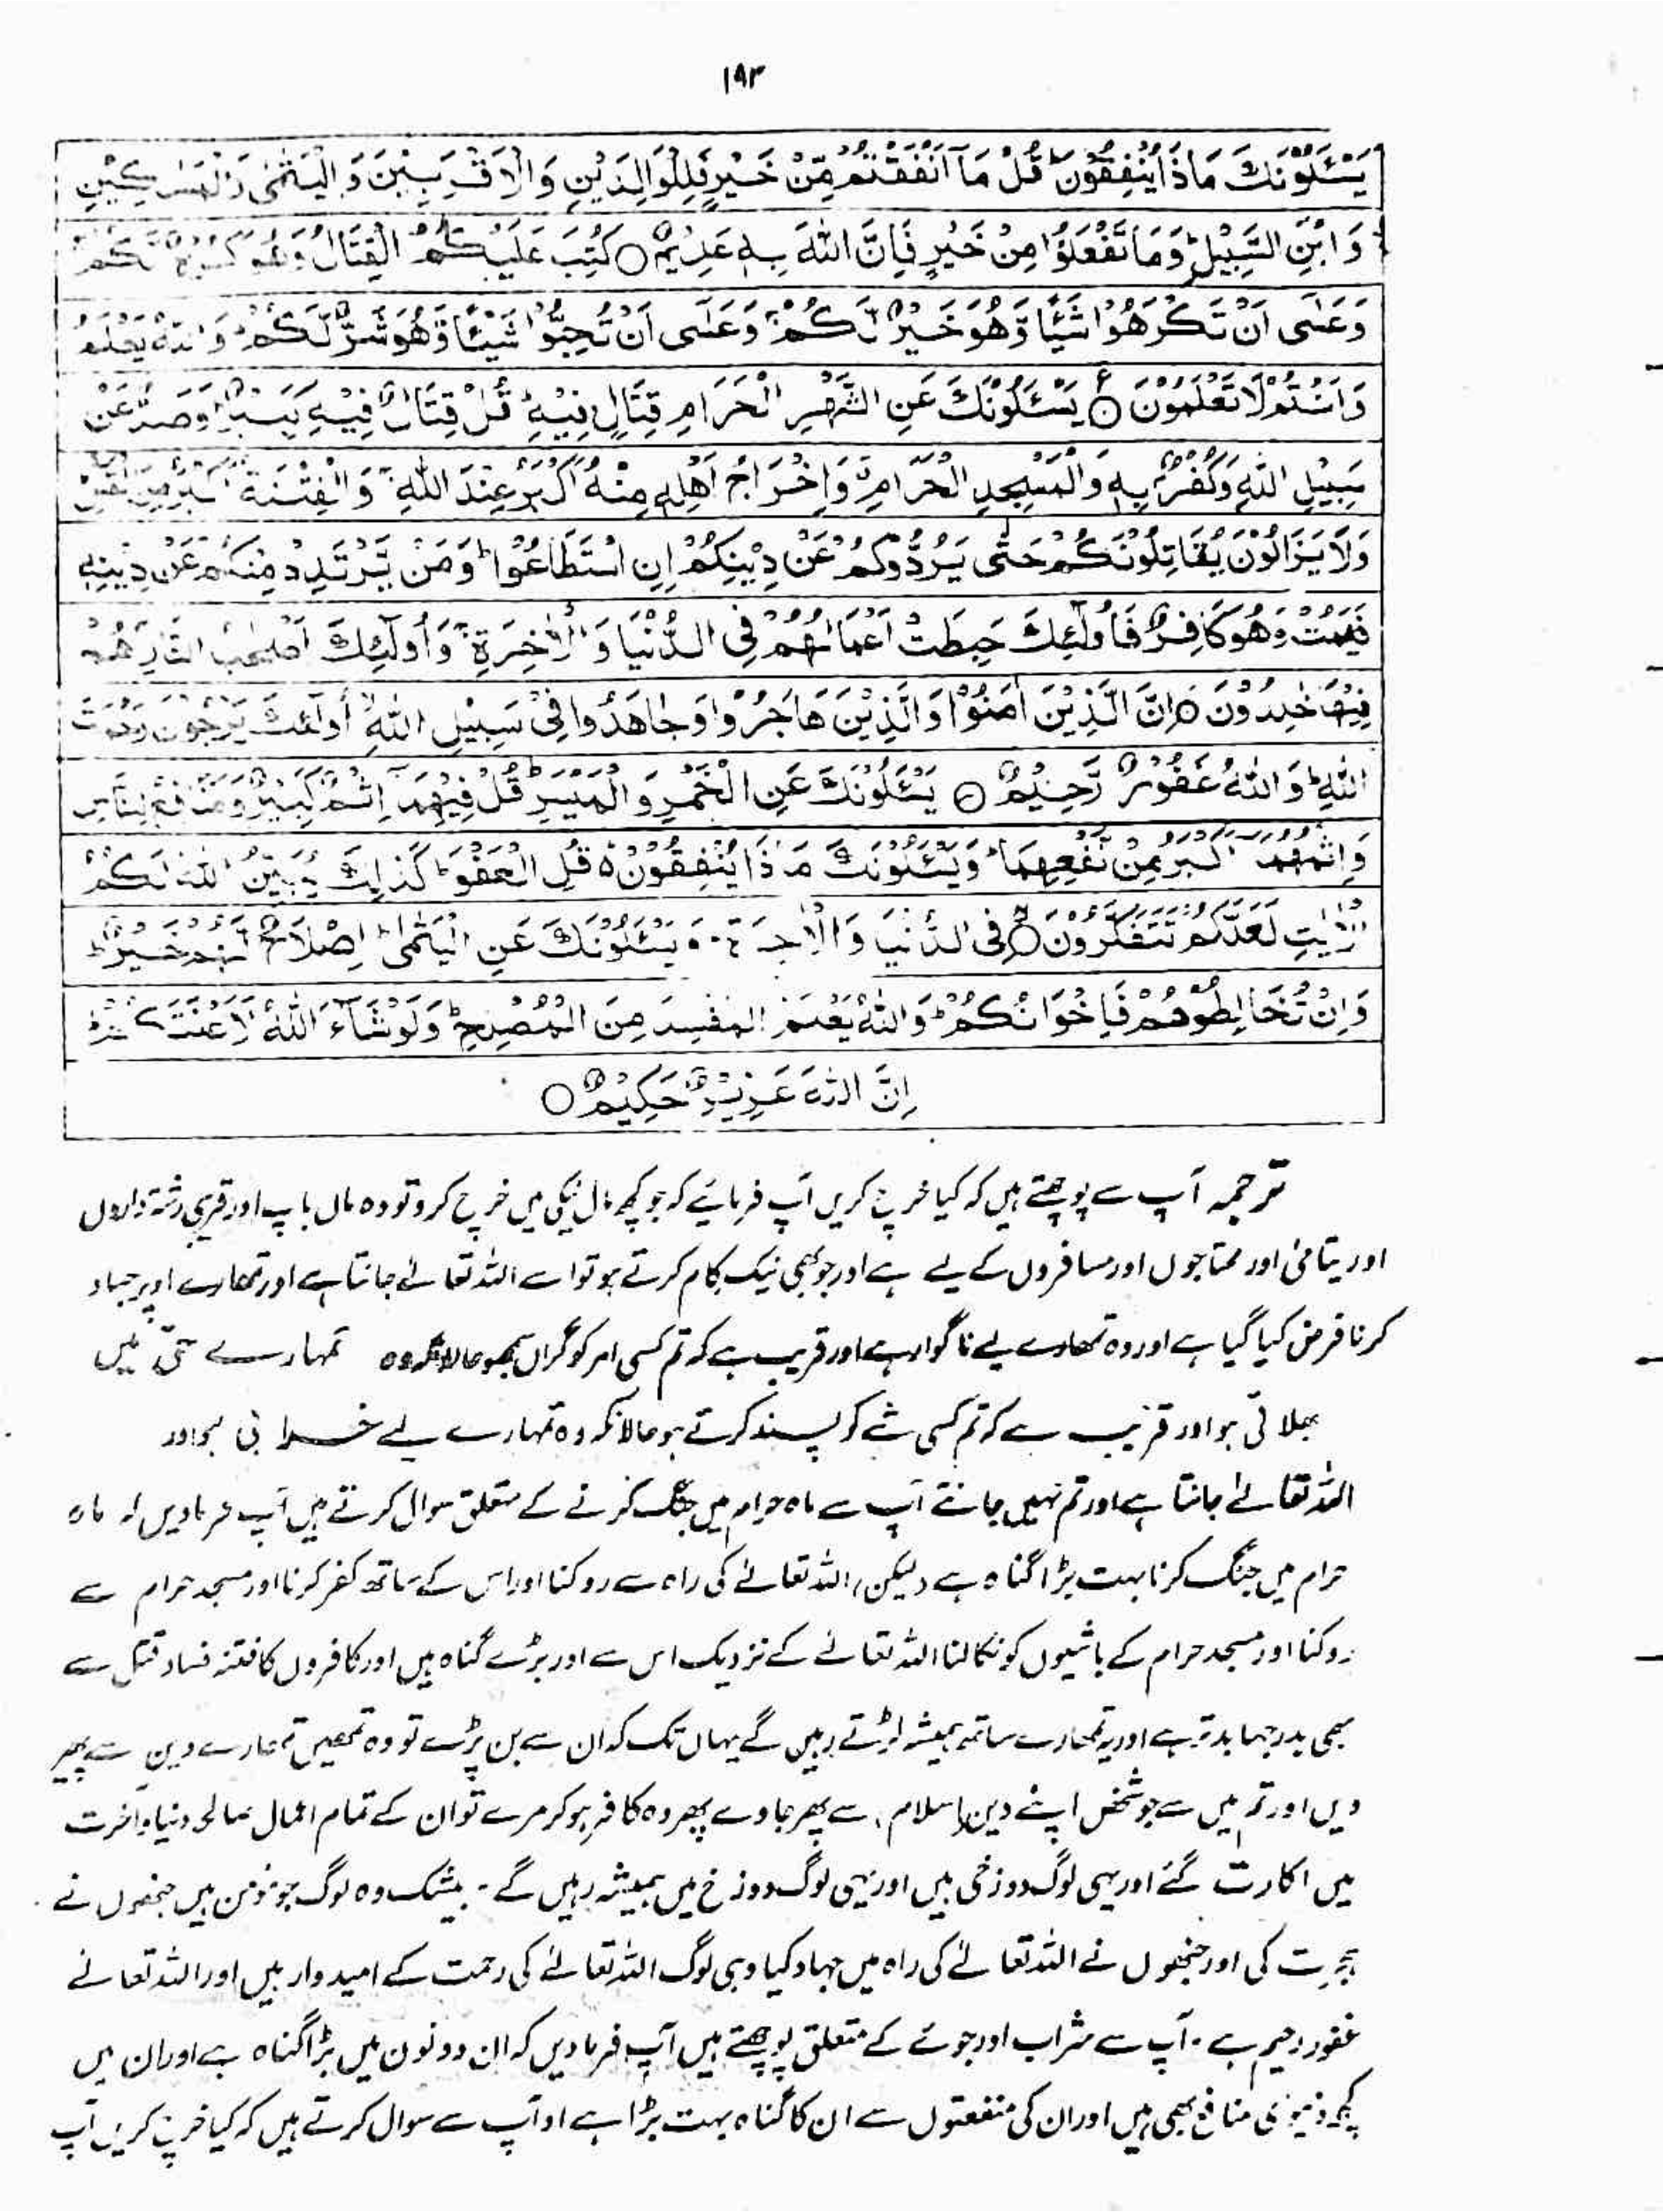 ۱۹۳
يَسْئَلُوْنَكَ مَاذَا يُنْفِقُوْنَ ؕ قُلْ مَآ اَنْفَقْتُمْ مِّنْ خَيْرٍ فَلِلْوَالِدَيْنِ وَالْاَقْرَبِيْنَ وَالْيَتٰمٰى وَالْمَسٰكِيْنِ
وَابْنِ السَّبِيْلِ ؕ وَمَا تَفْعَلُوْا مِنْ خَيْرٍ فَاِنَّ اللّٰهَ بِهٖ عَلِيْمٌ ○ كُتِبَ عَلَيْكُمُ الْقِتَالُ وَهُوَ كُرْهٌ لَّكُمْ
وَعَسٰى اَنْ تَكْرَهُوْا شَيْئًا وَّهُوَ خَيْرٌ لَّكُمْ ۚ وَعَسٰى اَنْ تُحِبُّوْا شَيْئًا وَّهُوَ شَرٌّ لَّكُمْ ؕ وَاللّٰهُ يَعْلَمُ
وَاَنْتُمْ لَا تَعْلَمُوْنَ ○ يَسْئَلُوْنَكَ عَنِ الشَّهْرِ الْحَرَامِ قِتَالٍ فِيْهِ ؕ قُلْ قِتَالٌ فِيْهِ كَبِيْرٌ ؕ وَصَدٌّ عَنْ
سَبِيْلِ اللّٰهِ وَكُفْرٌۢ بِهٖ وَالْمَسْجِدِ الْحَرَامِ ۗ وَاِخْرَاجُ اَهْلِهٖ مِنْهُ اَكْبَرُ عِنْدَ اللّٰهِ ۚ وَالْفِتْنَةُ اَكْبَرُ مِنَ الْقَتْلِ
وَلَا يَزَالُوْنَ يُقَاتِلُوْنَكُمْ حَتّٰى يَرُدُّوْكُمْ عَنْ دِيْنِكُمْ اِنِ اسْتَطَاعُوْا ؕ وَمَنْ يَّرْتَدِدْ مِنْكُمْ عَنْ دِيْنِهٖ
فَيَمُتْ وَهُوَ كَافِرٌ فَاُولٰٓئِكَ حَبِطَتْ اَعْمَالُهُمْ فِى الدُّنْيَا وَالْاٰخِرَةِ ۚ وَاُولٰٓئِكَ اَصْحٰبُ النَّارِ هُمْ
فِيْهَا خٰلِدُوْنَ ○ اِنَّ الَّذِيْنَ اٰمَنُوْا وَالَّذِيْنَ هَاجَرُوْا وَجَاهَدُوْا فِىْ سَبِيْلِ اللّٰهِ ۙ اُولٰٓئِكَ يَرْجُوْنَ رَحْمَتَ
اللّٰهِ ؕ وَاللّٰهُ غَفُوْرٌ رَّحِيْمٌ ○ يَسْئَلُوْنَكَ عَنِ الْخَمْرِ وَالْمَيْسِرِ ؕ قُلْ فِيْهِمَآ اِثْمٌ كَبِيْرٌ وَّمَنَافِعُ لِلنَّاسِ
وَاِثْمُهُمَآ اَكْبَرُ مِنْ نَّفْعِهِمَا ؕ وَيَسْئَلُوْنَكَ مَاذَا يُنْفِقُوْنَ ۗ قُلِ الْعَفْوَ ؕ كَذٰلِكَ يُبَيِّنُ اللّٰهُ لَكُمُ
الْاٰيٰتِ لَعَلَّكُمْ تَتَفَكَّرُوْنَ ○ فِى الدُّنْيَا وَالْاٰخِرَةِ ؕ وَيَسْئَلُوْنَكَ عَنِ الْيَتٰمٰى ؕ اِصْلَاحٌ لَّهُمْ خَيْرٌ ؕ
وَاِنْ تُخَالِطُوْهُمْ فَاِخْوَانُكُمْ ؕ وَاللّٰهُ يَعْلَمُ الْمُفْسِدَ مِنَ الْمُصْلِحِ ؕ وَلَوْ شَآءَ اللّٰهُ لَاَعْنَتَكُمْ ؕ
اِنَّ اللّٰهَ عَزِيْزٌ حَكِيْمٌ ○
ترجمہ آپ سے پوچھتے ہیں کہ کیا خرچ کریں آپ فرمایئے کہ جو کچھ مال نیکی میں خرچ کرو تو وہ ماں باپ اور قریبی رشتہ داروں
اور یتامیٰ اور محتاجوں اور مسافروں کے لیے ہے اور جو بھی نیک کام کرتے ہو تو اسے اللہ تعالےٰ جانتا ہے اور تمھارے اوپر جہاد
کرنا فرض کیا گیا ہے اور وہ تمھارے لیے ناگوار ہے اور قریب ہے کہ تم کسی امر کو گراں سمجھو حالانکہ وہ تمہارے حق میں
بھلائی ہو اور قریب ہے کہ تم کسی شے کو پسند کرتے ہو حالانکہ وہ تمہارے لیے خرابی ہو اور
اللہ تعالےٰ جانتا ہے اور تم نہیں جانتے آپ سے ماہ حرام میں جنگ کرنے کے متعلق سوال کرتے ہیں آپ فرمادیں کہ ماہ
حرام میں جنگ کرنا بہت بڑا گناہ ہے (لیکن) اللہ تعالےٰ کی راہ سے روکنا اور اس کے ساتھ کفر کرنا اور مسجد حرام سے
روکنا اور مسجد حرام کے باشیوں کو نکالنا اللہ تعالےٰ کے نزدیک اس سے اور بڑے گناہ ہیں اور کافروں کا فتنہ فساد قتل سے
بھی بدرجہا بدتر ہے اور یہ تمھارے ساتھ ہمیشہ لڑتے رہیں گے یہاں تک کہ ان سے بن پڑے تو وہ تمھیں تمھارے دین سے پھیر
دیں اور تم میں سے جو شخص اپنے دین (اسلام) سے پھر جاوے پھر وہ کافر ہو کر مرے تو ان کے تمام اعمال صالح دنیا و آخرت
میں اکارت گئے اور یہی لوگ دوزخی ہیں اور یہی لوگ دوزخ میں ہمیشہ رہیں گے ۔ بیشک وہ لوگ جو مومن ہیں جنھوں نے
ہجرت کی اور جنھوں نے اللہ تعالےٰ کی راہ میں جہاد کیا وہی لوگ اللہ تعالےٰ کی رحمت کے امیدوار ہیں اور اللہ تعالےٰ
غفور رحیم ہے ۔ آپ سے شراب اور جوئے کے متعلق پوچھتے ہیں آپ فرمادیں کہ ان دونوں میں بڑا گناہ ہے اور ان میں
کچھ دنیوی منافع بھی ہیں اور ان کی منفعتوں سے ان کا گناہ بہت بڑا ہے او آپ سے سوال کرتے ہیں کہ کیا خرچ کریں آپ